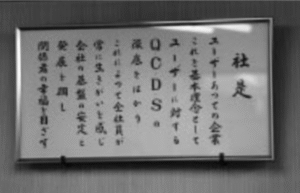 社是
ユーザーあっての企業
これを基本理念として
ユーザーに対する
QCDSの
徹底をはかり
これによって全社員が
常に生きがいを感じ
会社の基盤の安定と
発展を期し
関係者の幸福を目ざす